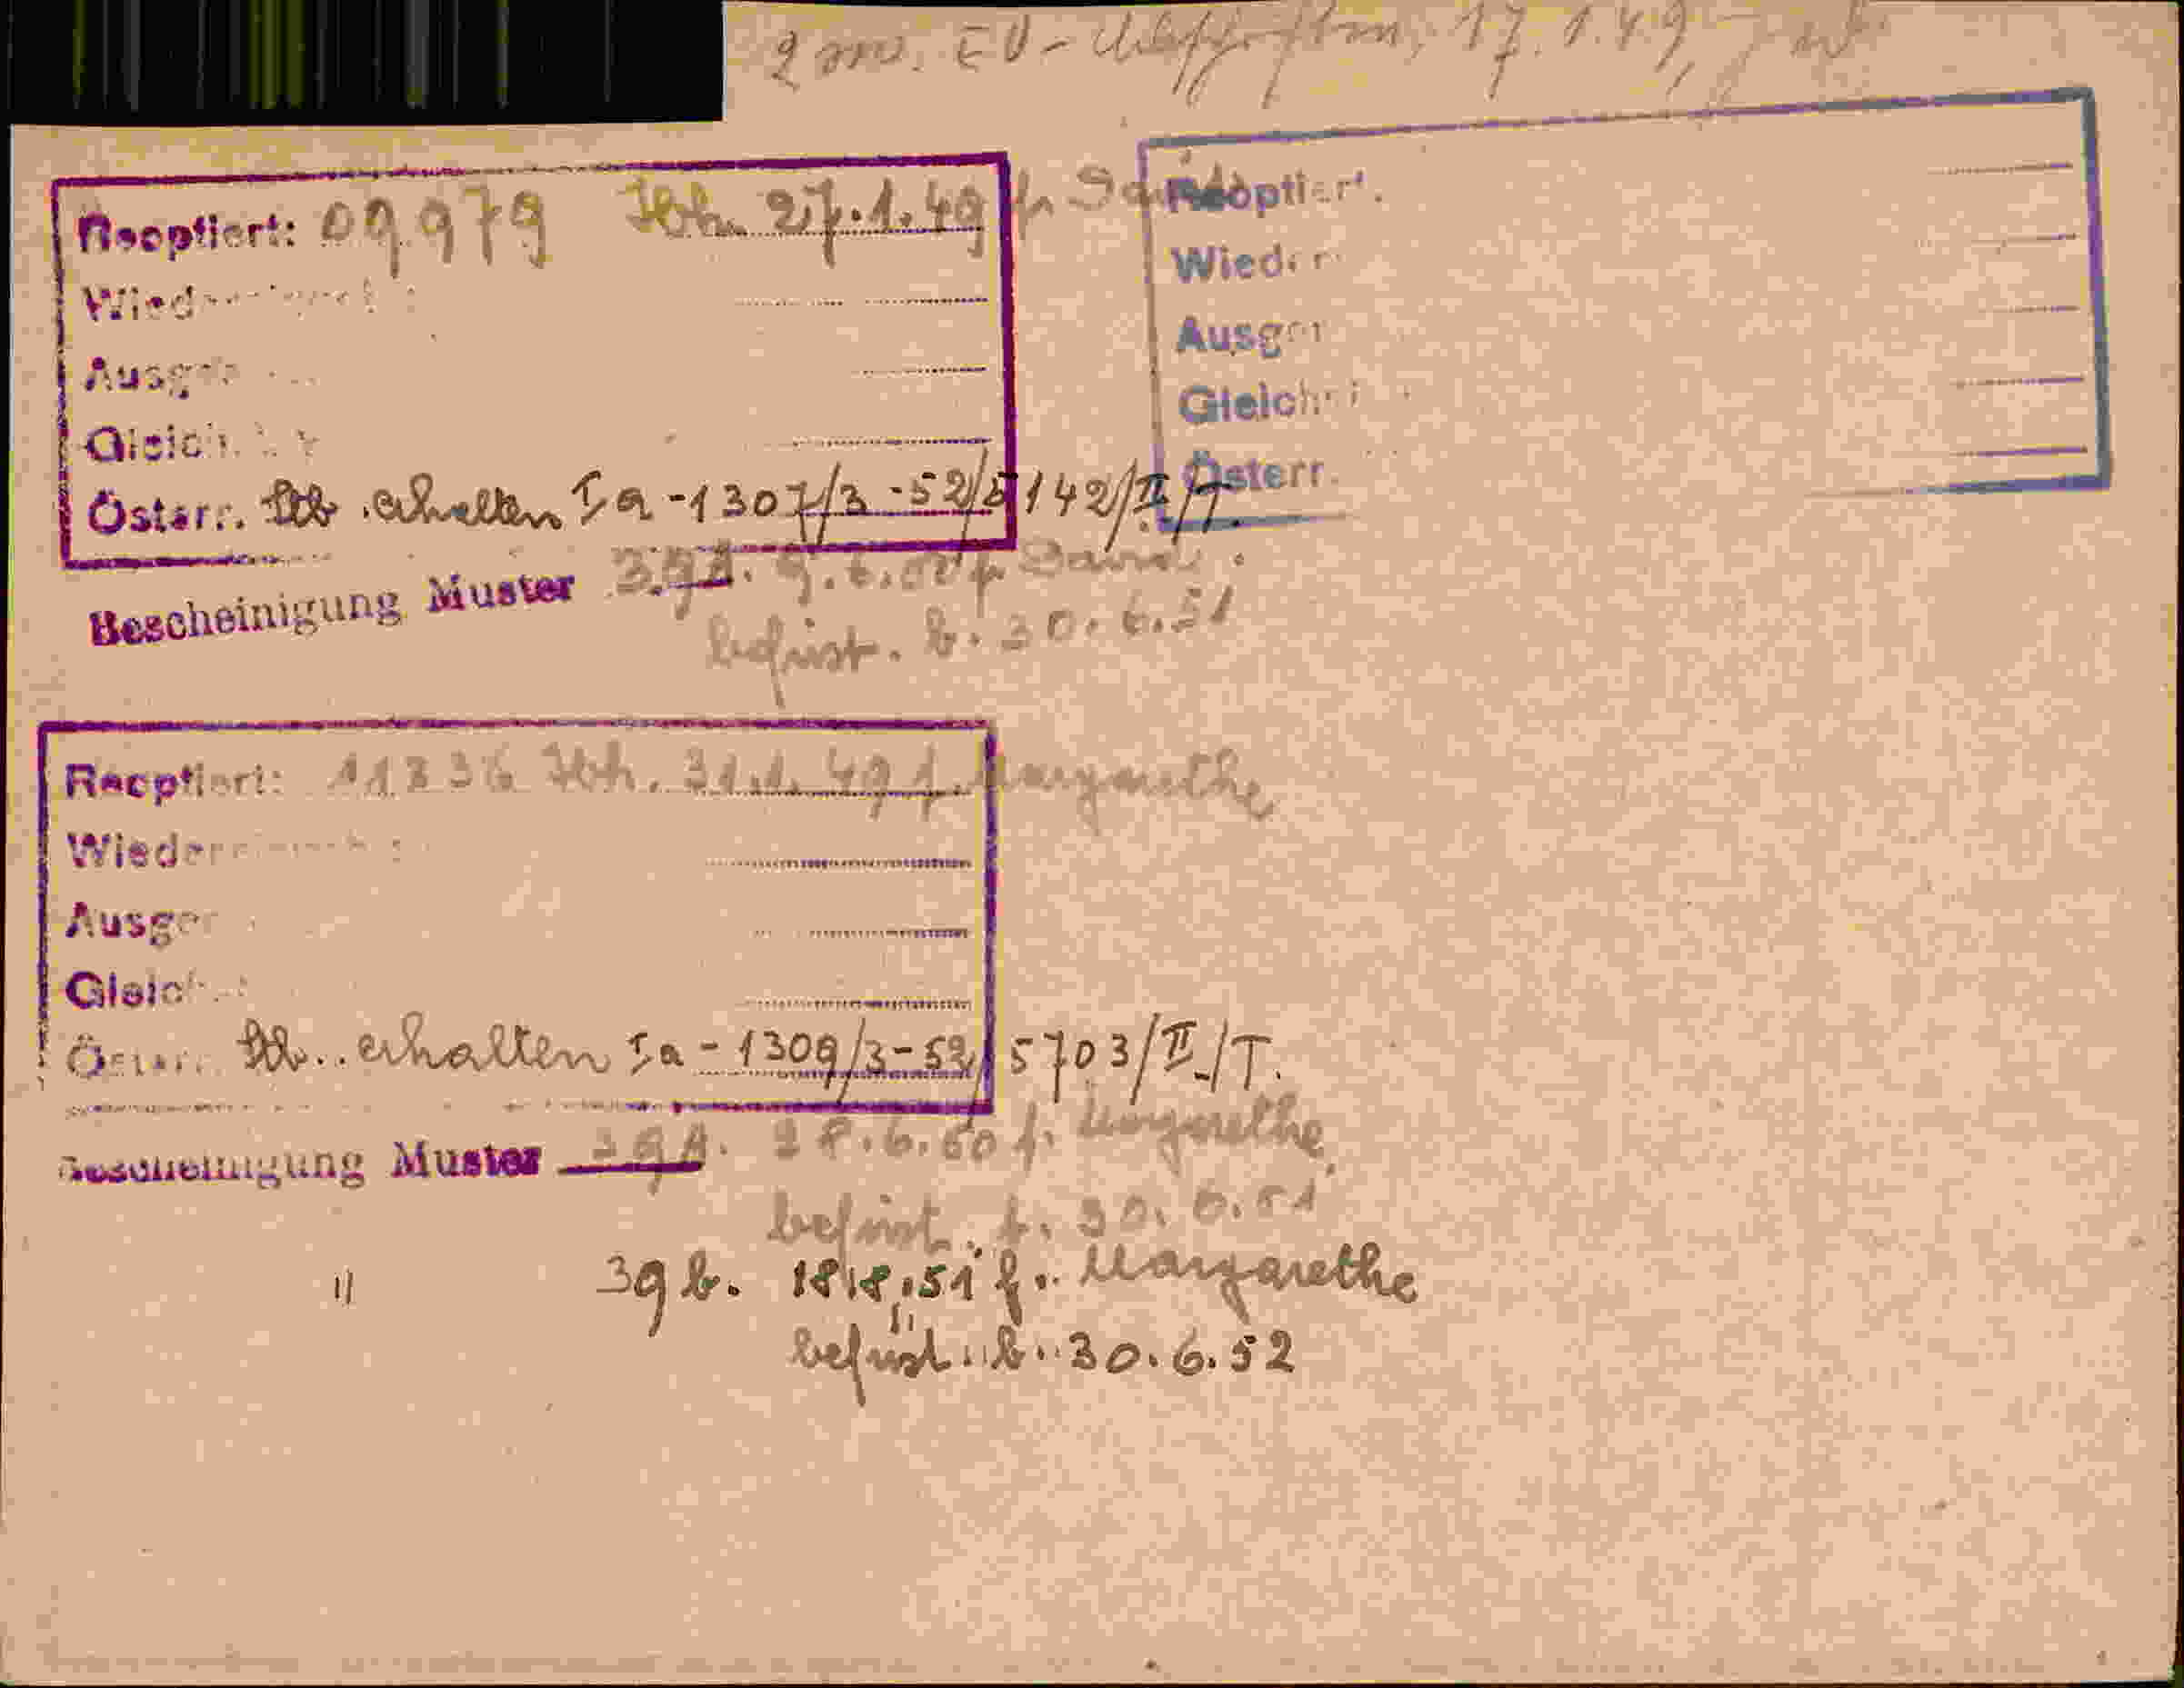 17.1.49,
Reoptiert: 09979 27.1.49 f. David
Wied
Ausge
Gleich
Österr. Stb. erhalten Ia-1307/3-52/5142/II/T.
Bescheinigung Muster 39A. f. David.
befrist. b. 30.6.51
Reoptiert.
Wieder
Ausge
Gleich
Österr.
Reoptiert: 31.1.49 f. Margarethe
Wieder
Ausge
Gleich
Österr. Stb. erhalten Ia-1309/3-52/5703/II/T.
Bescheinigung Muster 39A. 28.6.50 f. Margarethe
befrist. b. 30.6.51
" 39b. f. Margarethe
befrist. b. 30.6.52